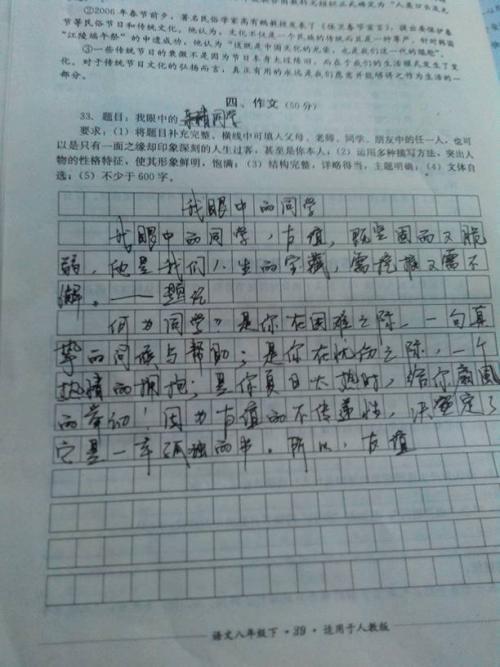 ②2006年春节前夕，著名民俗学家高有鹏教授发表了《保卫春节宣言》，提出要保护春
节等民俗节日和传统文化。他认为，文化不仅是一个民族的传统而且是一种尊严，针对韩国
“江陵端午祭”的申遗成功，他认为“这既是中国文化的光荣，也是我们这一代的尴尬”。
③一些传统节日的衰微不是因为节日本身太过陈旧，而在于我们的生活模式发生了变
化。对于传统节日文化的弘扬而言，真正有用的永远是我们愿意并能够将之作为生活的一
部分。
四、作文(50分)
33. 题目：我眼中的 同学
要求：(1) 将题目补充完整。横线中可填入父母、老师、同学、朋友中的任一人，也可
以是只有一面之缘却印象深刻的人生过客，甚至是你本人；(2) 运用多种描写方法，突出人
物的性格特征，使其形象鲜明，饱满；(3) 结构完整，详略得当，主题明确；(4) 文体自
选；(5) 不少于600字。
我眼中的同学
我眼中的同学，友谊，既坚固而又脆
弱，他是我们人生的宝藏，需挖掘又需不
懈。——题记
何为同学》是你在困难之际，一句真
挚的问候与帮助；是你在忧伤之际，一个
热情的拥抱；是你夏日大热时，给你扇风
的举动！因为友谊的不传递性，决定了
它是一 孤独的书。所以，友谊
语文八年级下·39·适用于人教版